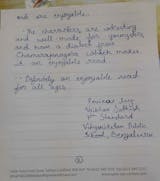 and are enjoyable.
- The characters are interesting
and well made for youngsters
and now a dialect from
Chamarajanagara which makes
it an enjoyable read.
- Definitely an enjoyable read
for all ages.
Review by
7th Standard
Vidyaniketan Public
School, Bengaluru